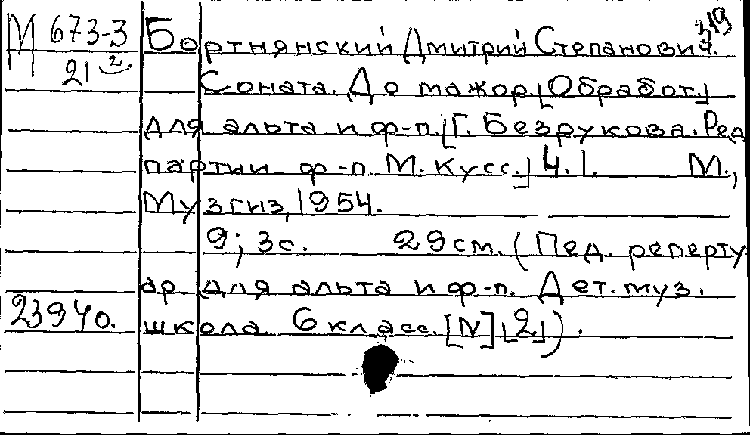 319
М 673-3
21 2
Бортнянский Дмитрий Степанович.
Соната. До мажор. [Обработ.]
для альта и ф-п. [Г. Безрукова. Ред.
партии ф-п. М. Кусс.] Ч. 1. М.,
Музгиз, 1954.
9; 3с. 29см. (Пед. реперту
ар для альта и ф-п. Дет. муз.
школа. 6 класс. [N] [2]).
23940.